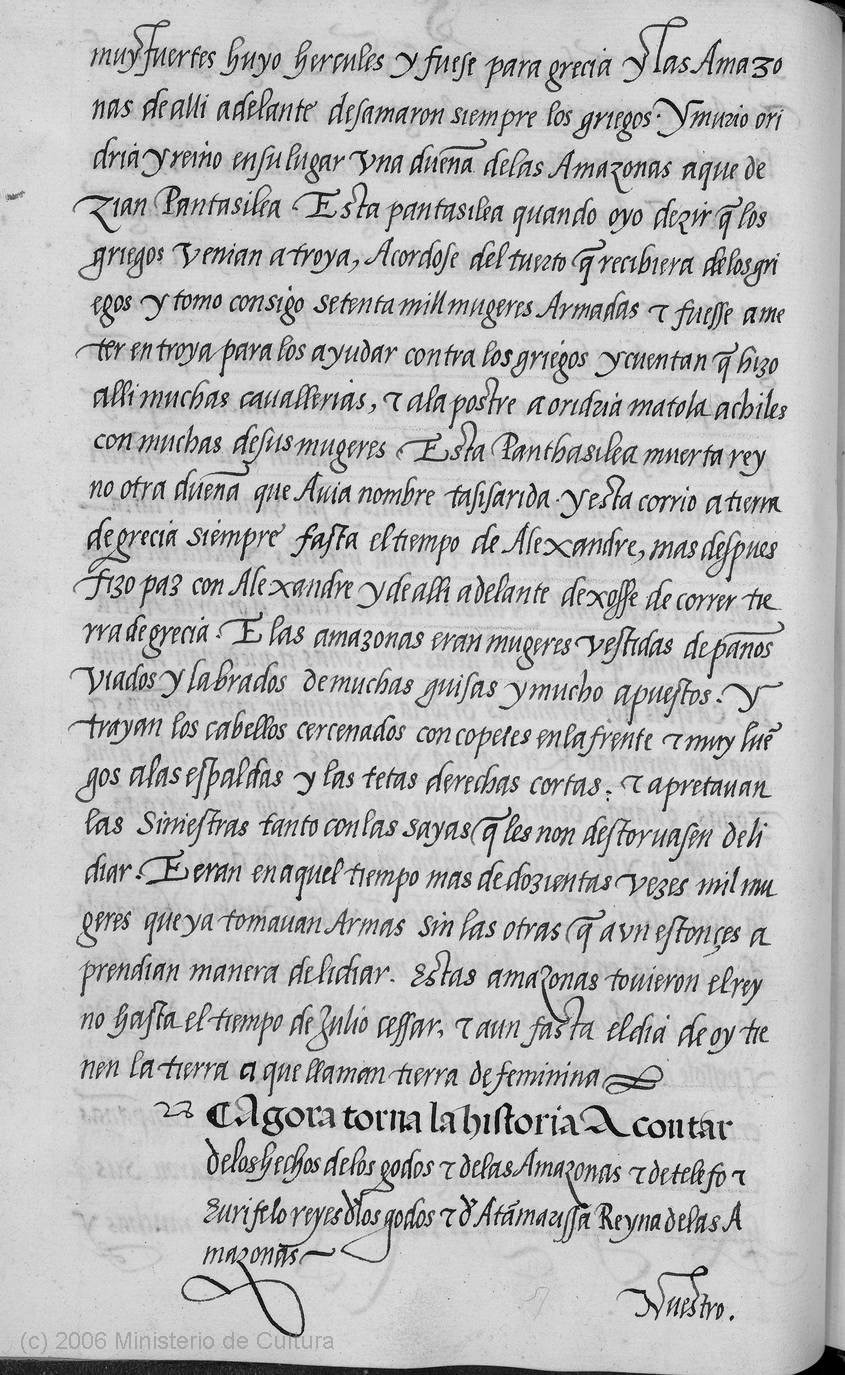 muy fuertes huyo hercules y fuese para grecia y las Amazo
nas de alli adelante desamaron siempre los griegos. Y murio ori
dria y reino en su lugar vna dueña delas Amazonas a que de
zian Pantasilea. Esta pantasilea quando oyo dezir q̃ los
griegos venian a troya, Acordose del tuerto q̃ recibiera delos gri
egos y tomo consigo setenta mill mugeres Armadas τ fuesse a me
ter en troya para los ayudar contra los griegos y cuentan q̃ hizo
alli muchas cavallerias, τ ala postre a oridria matola achiles
con muchas de sus mugeres. Esta Panthasilea muerta rey
no otra dueña que Auia nombre tasisarida. y esta corrio a tierra
de grecia siempre fasta el tiempo de Alexandre, mas despues
fizo paz con Alexandre y de alli adelante dexosse de correr tie
rra de grecia. E las amazonas eran mugeres vestidas de paños
viados y labrados de muchas guisas y mucho apuestos. y
trayan los cabellos cercenados con copetes en la frente τ muy luẽ
gos alas espaldas y las tetas derechas cortas; τ apretauan
las siniestras tanto con las sayas q̃ les non destoruasen de li
diar. E eran en aquel tiempo mas de dozientas vezes mil mu
geres que ya tomauan Armas sin las otras q̃ avn estonçes a
prendian manera de lidiar. Estas amazonas tovieron el rey
no hasta el tiempo de Julio cessar, τ aun fasta el dia de oy tie
nen la tierra a que llaman tierra de feminina
¶Agora torna la historia A contar
delos hechos delos godos τ delas Amazonas τ de telefo τ
Eurifelo reyes d'los godos τ d' Atãmarissa Reyna delas A
mazonas
Nuestro.
(c) 2006 Ministerio de Cultura